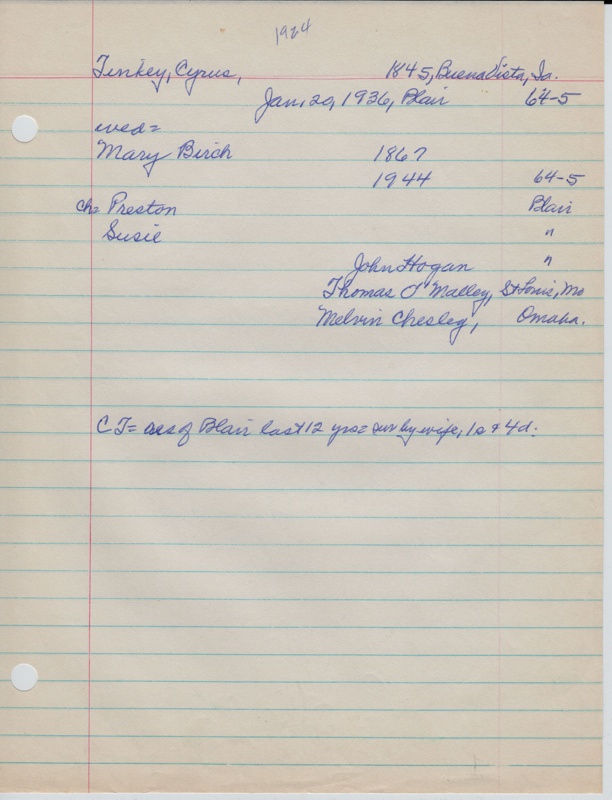 1924
Tinkey, Cyrus, 1845, Buena Vista, Ia.
Jan, 20, 1936, Blair 64-5
wed=
Mary Birch 1867
1944 64-5
ch= Preston Blair
Susie "
John Hogan "
Thomas O'Malley, St Louis, Mo
Melvin Chesley, Omaha.
CT= res of Blair last 12 yrs= sur by wife, 1s & 4d.